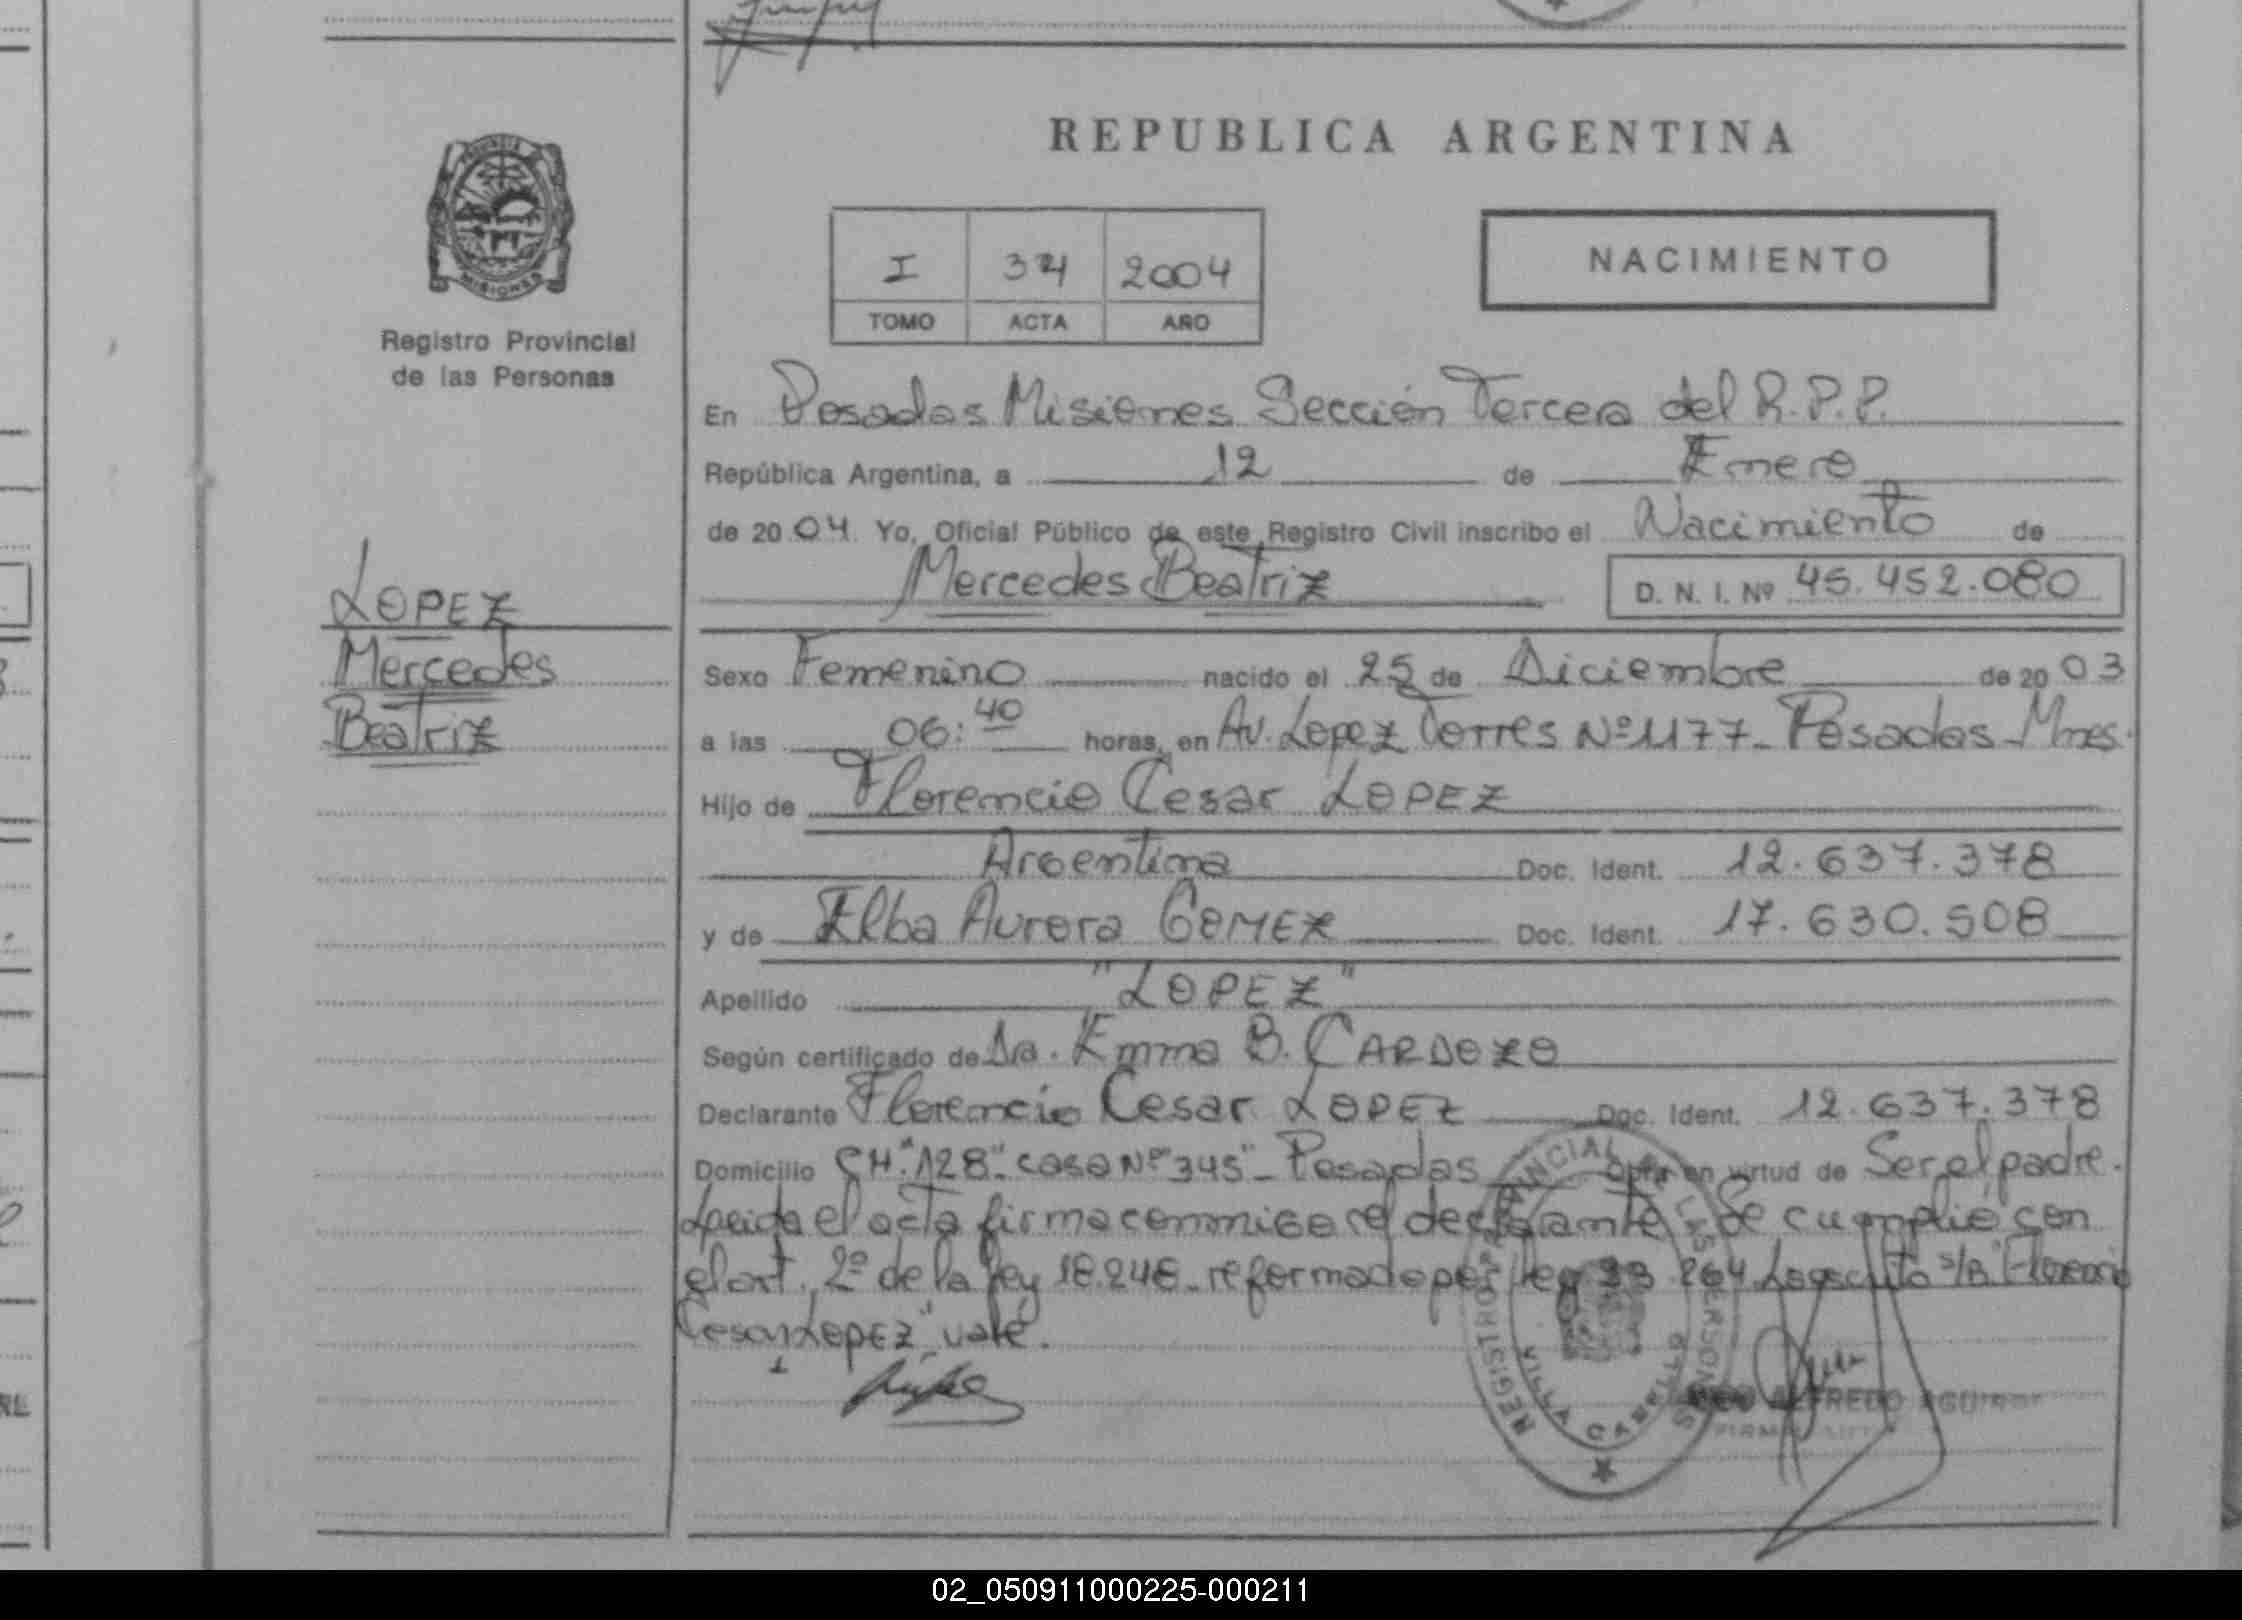 REPUBLICA ARGENTINA
PROVINCIA DE
MISIONES
Registro Provincial
de las Personas
I 2004
TOMO ACTA AÑO
NACIMIENTO
En Posadas Misiones Sección Tercera del R.P.P.
República Argentina, a 12 de Enero
de 2004. Yo, Oficial Público de este Registro Civil inscribo el Nacimiento de
Mercedes Beatriz D. N. I. Nº 45.452.080
LOPEZ
Mercedes
Beatriz
Sexo Femenino nacido el 25 de Diciembre de 2003
a las 06:40 horas, en Av. Lopez Torres Nº 1177 - Posadas - Mnes.
Hijo de Florencio Cesar LOPEZ
Argentina Doc. Ident. 12.637.378
y de Elba Aurora GOMEZ Doc. Ident. 17.630.508
Apellido "LOPEZ"
Según certificado de Dra. Emma B. CARDOZO
Declarante Florencio Cesar LOPEZ Doc. Ident. 12.637.378
Domicilio CH. "128" - casa Nº "345" - Posadas obra en virtud de Ser el padre.
Leida el acta firma conmigo el declarante. Se cumplió con
el art. 2º de la ley 18.248 - reformado por ley 23.264 Lo escrito s/b "Florencio
Cesar Lopez" vale.
REGISTRO PROVINCIAL DE LAS PERSONAS
VILLA CABELLO
ALFREDO AGUIRRE
02_050911000225-000211